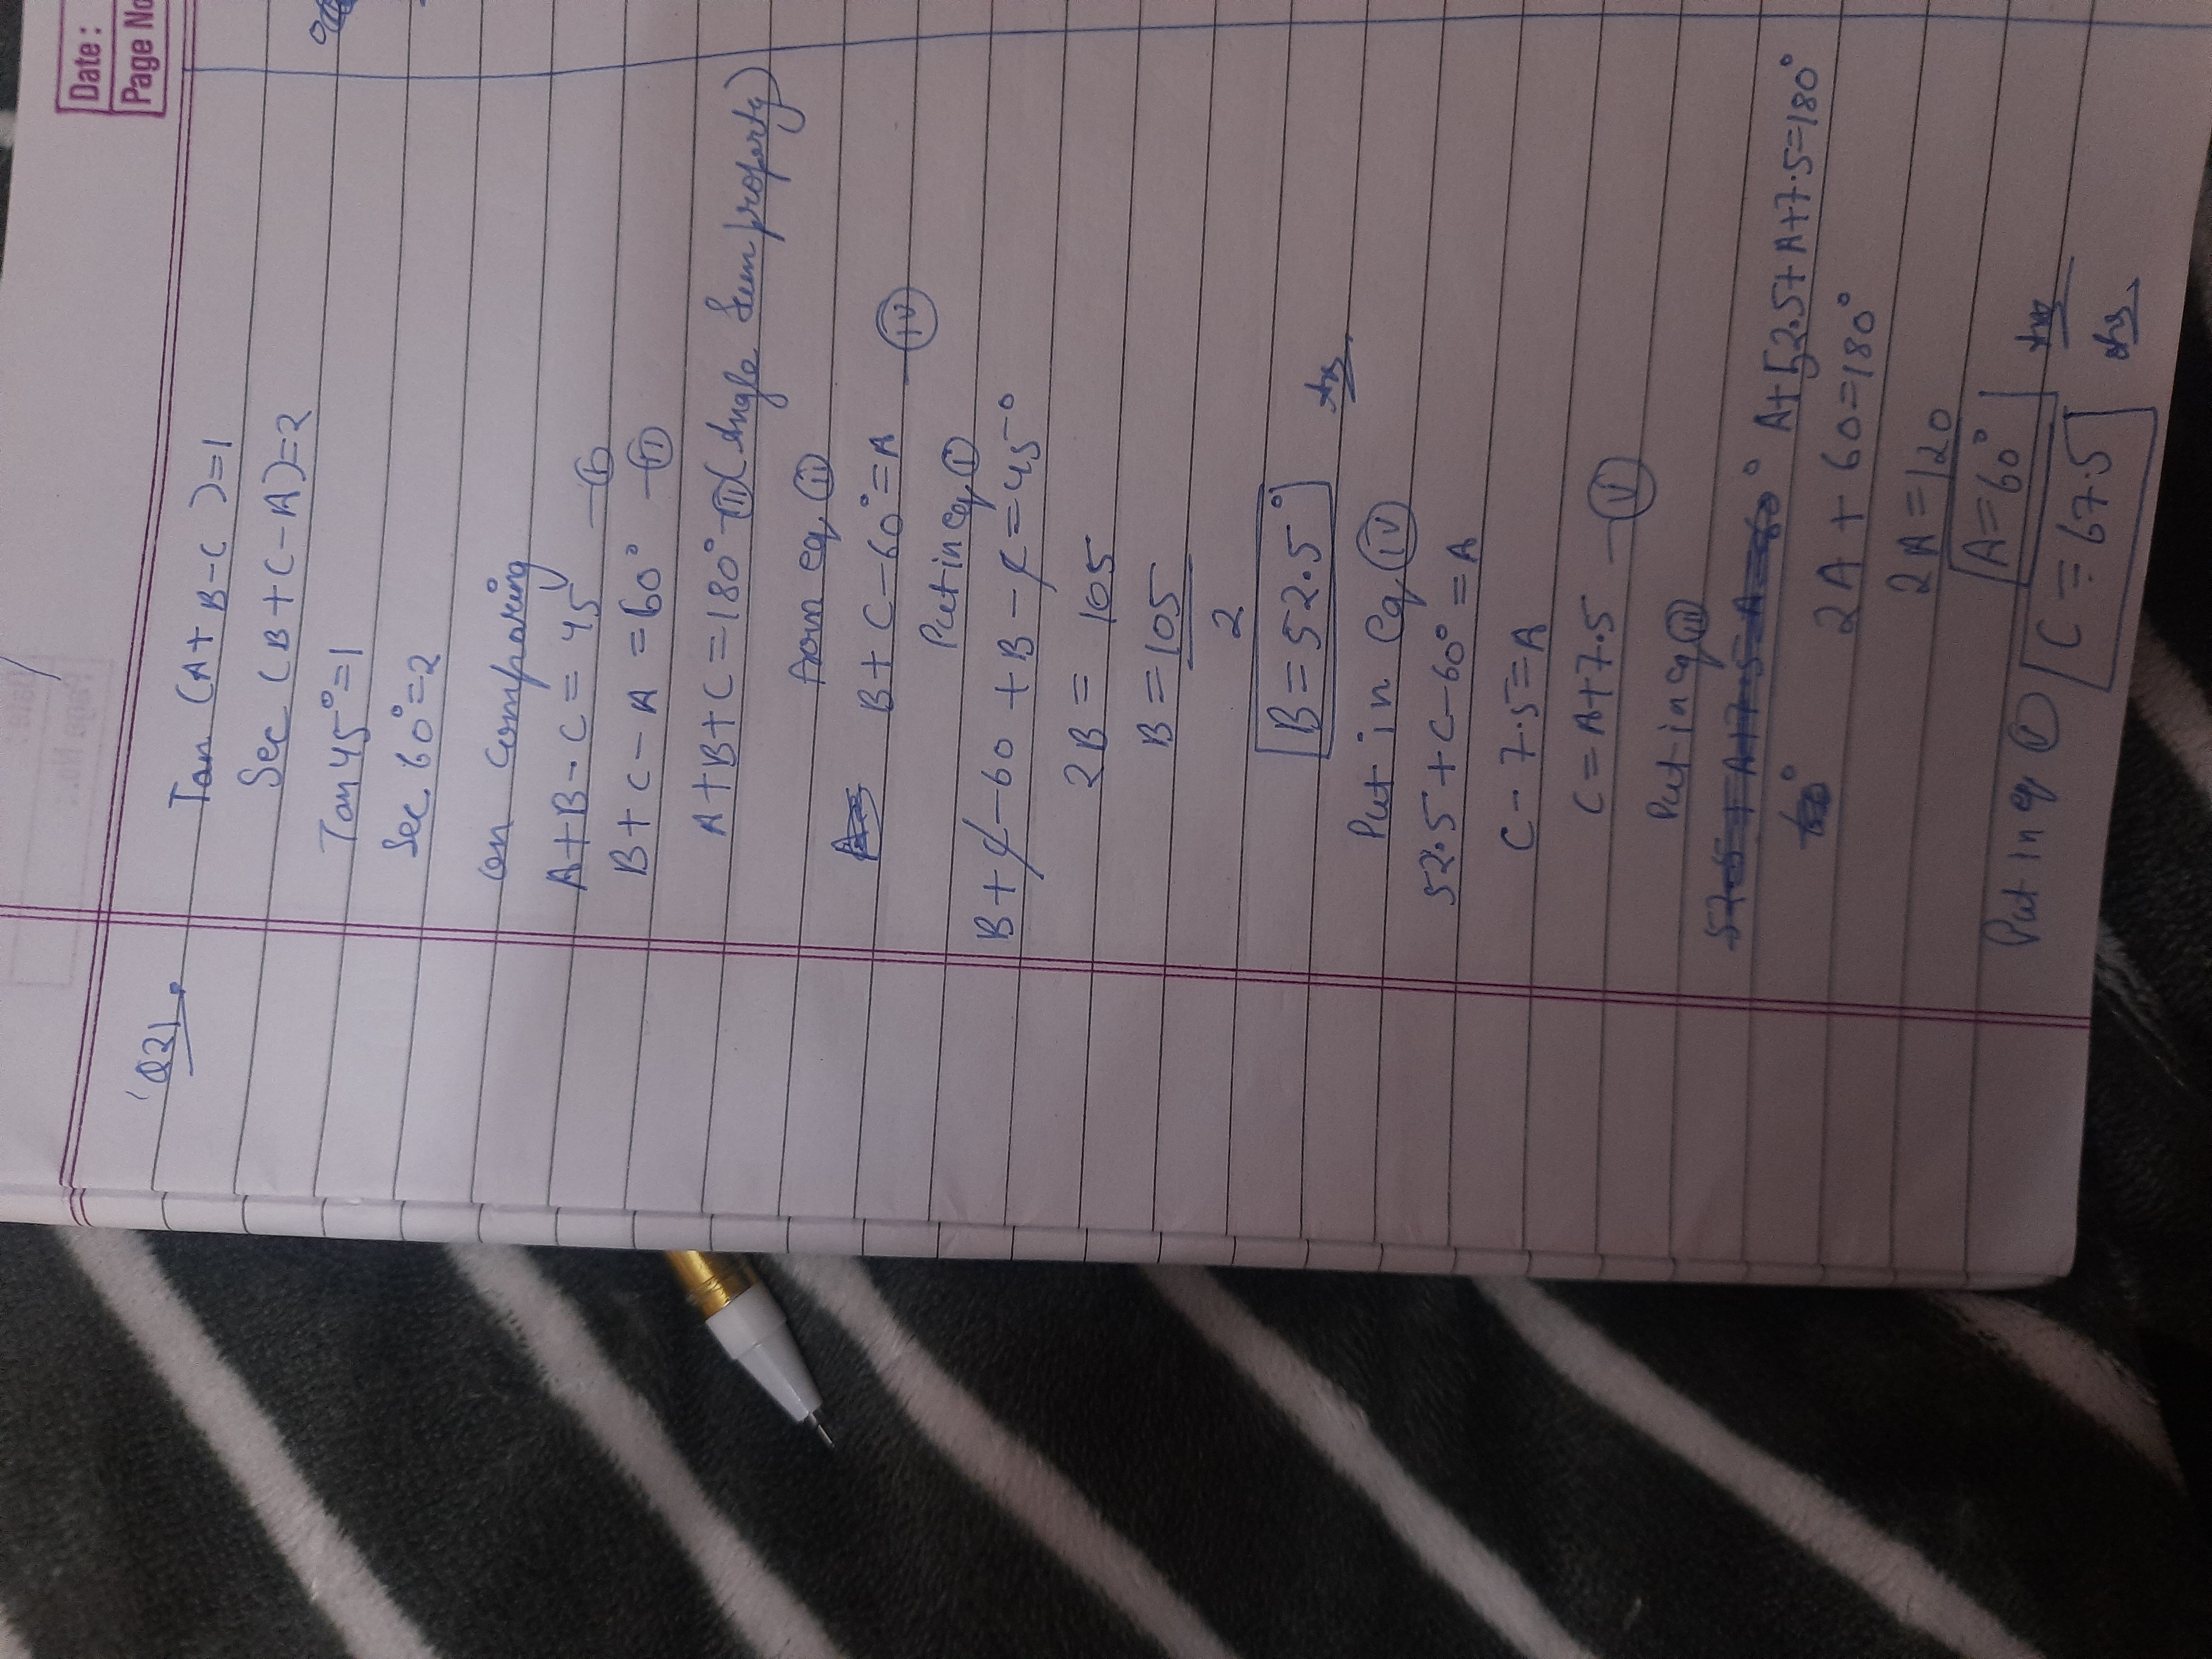 Date:
Page No
Q21.
Tan (A+B-C)=1
Sec (B+C-A)=2
Tan 45°=1
Sec 60°=2
on comparing
A+B-C = 45 - (i)
B+C-A = 60° - (ii)
A+B+C=180° - (iii) (Angle Sum property)
from eq (ii)
B+C-60°=A - (iv)
Put in eq (i)
B+C-60+B-C=45°
2B = 105
B = 105
2
B = 52.5°
Ans
Put in eq (iv)
52.5+C-60°=A
C-7.5=A
C=A+7.5 - (v)
Put in eq (iii)
A+52.5+A+7.5=180°
2A+60=180°
2A=120
A=60° Ans
Put in eq (v) C=67.5 Ans